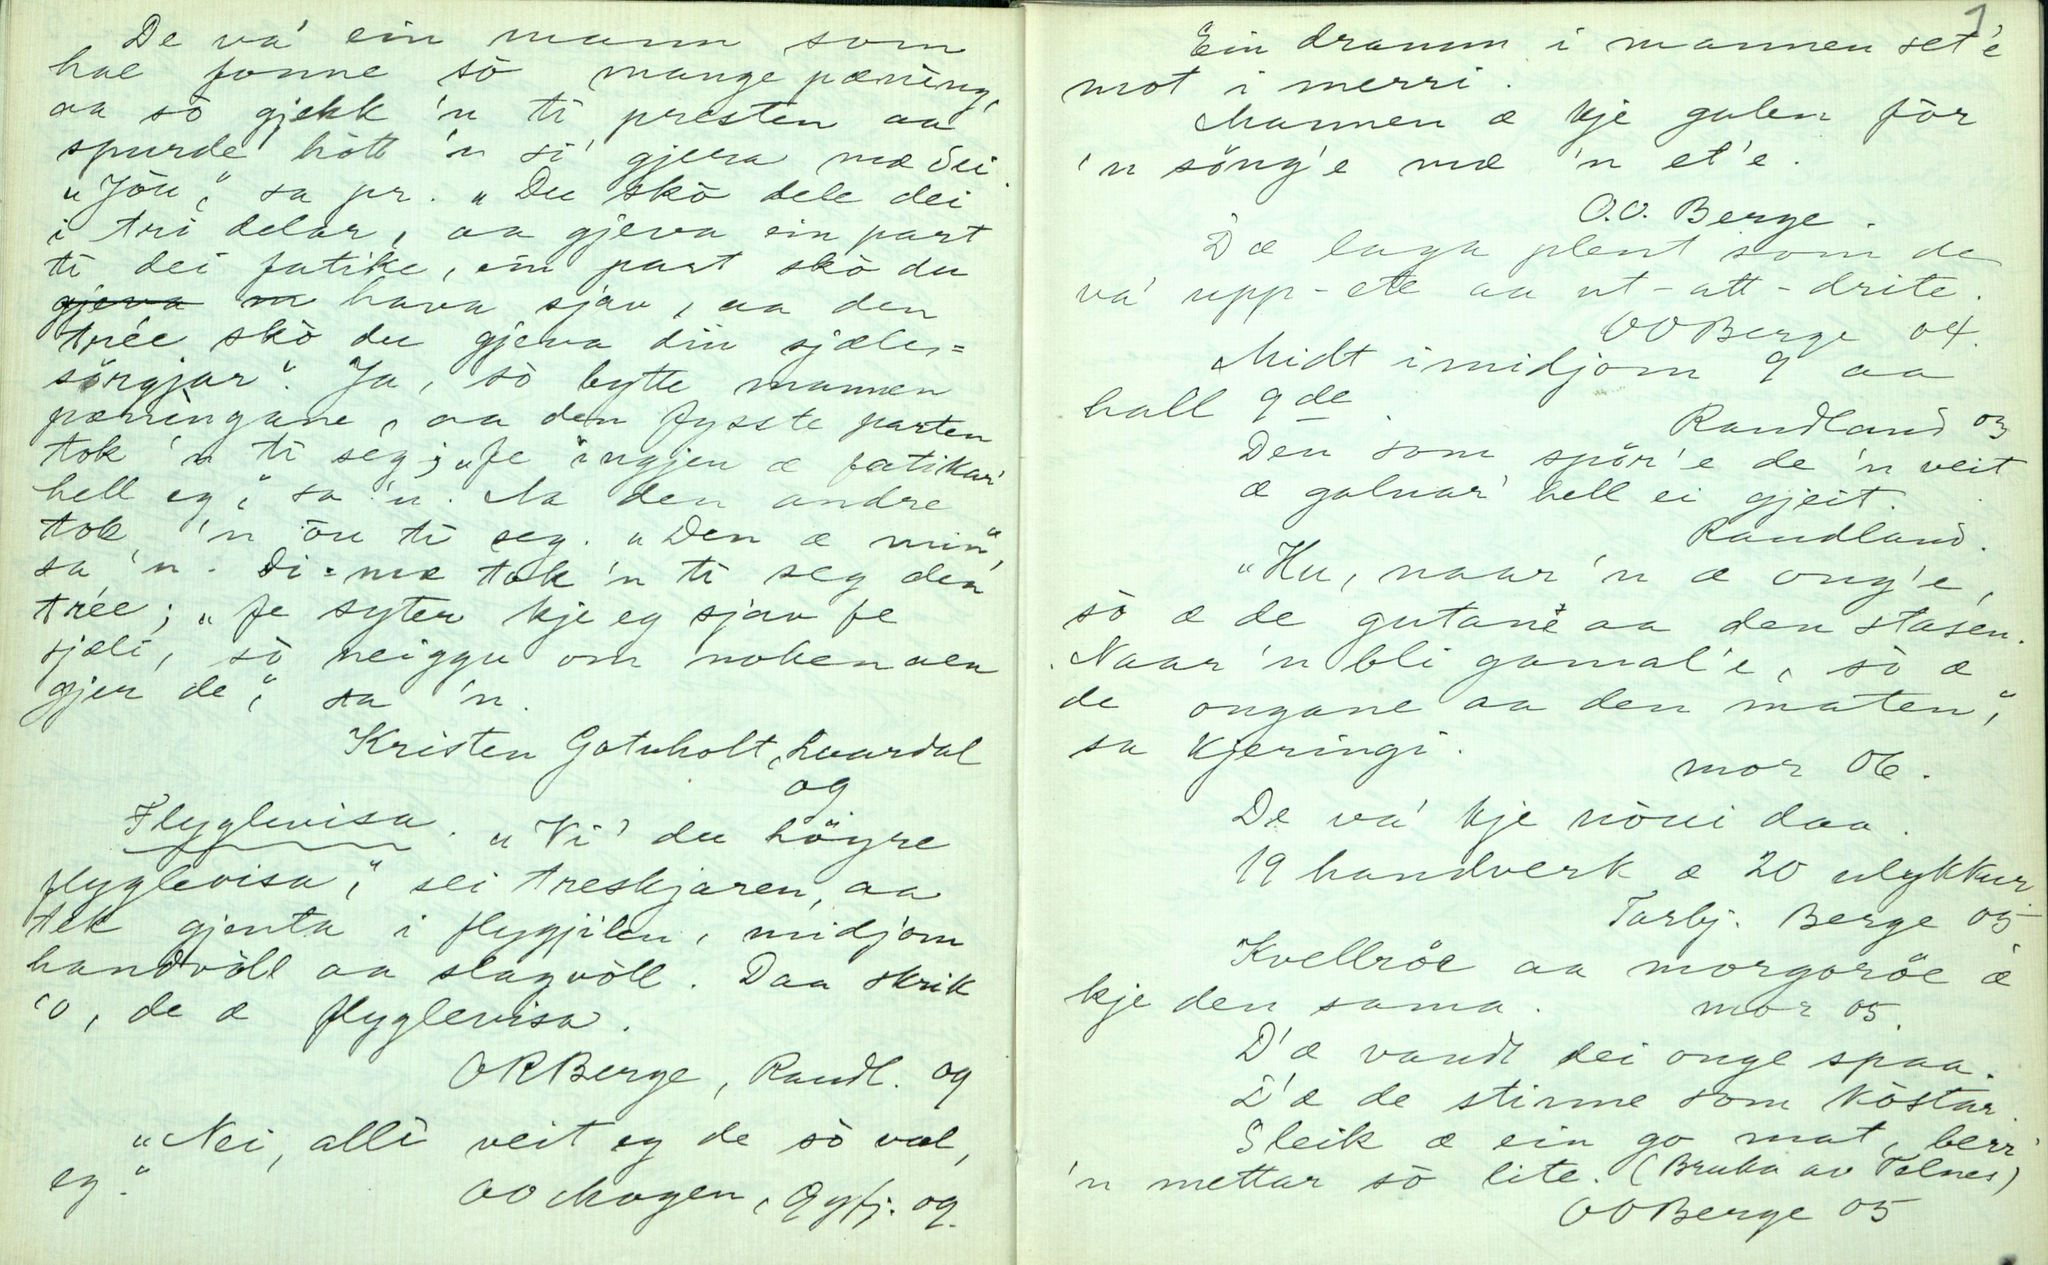 De va' ein mann som
hae fonne sò mange pæning,
aa sò gjekk 'n ti presten aa
spurde hòtt 'n si' gjera mæ dei.
„Jòu," sa pr. „Du skò dele dei
i tri delar, aa gjeva ein part
ti dei fatike, ein part skò du
hava sjav, aa den
trée skò du gjeva din sjæle-
sörgjar". Ja, sò bytte mannen
pæningane, aa den fysste parten
tok 'n ti seg; „fe ingjen æ fatikar'
hell eg," sa 'n. Aa den andre
tok 'n òu ti seg. „Den æ min",
sa 'n. Di-mæ tok 'n ti seg den
trée; „fe syter kje eg sjav fe
sjæli, sò neiggu om noken aen
gjer de," sa 'n.
Kristen Gotuholt, Lvardal
09
Flyglevisa. „Vi' du höyre
flyglevisa," sei treskjaren, aa
tek gjenta i flygjilen, midjom
handvòll aa slagvòll. Daa skrik
'o, de æ flyglevisa.
ORBerge, Randl. 09
„Nei, alli veit eg de sò væl,
eg."
OO Mogen, Øyfj. 09.
1
Ein dramm i mannen set'e
mot i merri.
Mannen æ kje galen fòr
'n söng'e mæ 'n et'e.
O.O. Berge.
D æ laga plent som de
va' upp-ete aa ut-att-drite.
OOBerge 04.
Midt imidjom 9 aa
hall 9de.
Randland 03
Den som spör'e de 'n veit
æ galnar' hell ei gjeit.
Randland.
„Hu, naar 'n æ ong'e,
sò æ de gutane aa den stasen.
Naar 'n bli gamal'e, sò æ
de ongane aa den maten,"
sa kjeringi.
mor 06.
De va' kje nòui daa.
19 handverk æ 20 ulykkur.
Tarbj. Berge 05
Kvellröe aa morgoröe æ
kje den sama. mor 05.
D'æ vandt dei onge spaa.
D'æ de stinne som kòstar.
Sleik æ ein go mat, berr'
'n mettar sò lite. (Bruka av Telnes)
OOBerge 05